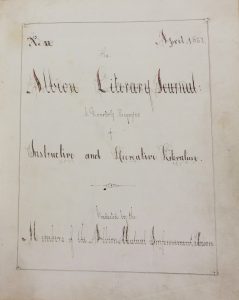 April, 1857
The
Albion Literary Journal:
A Quarterly Magazine
of
Instructive and Recreative Literature.
Conducted by the
Members of the Albion Mutual Improvement